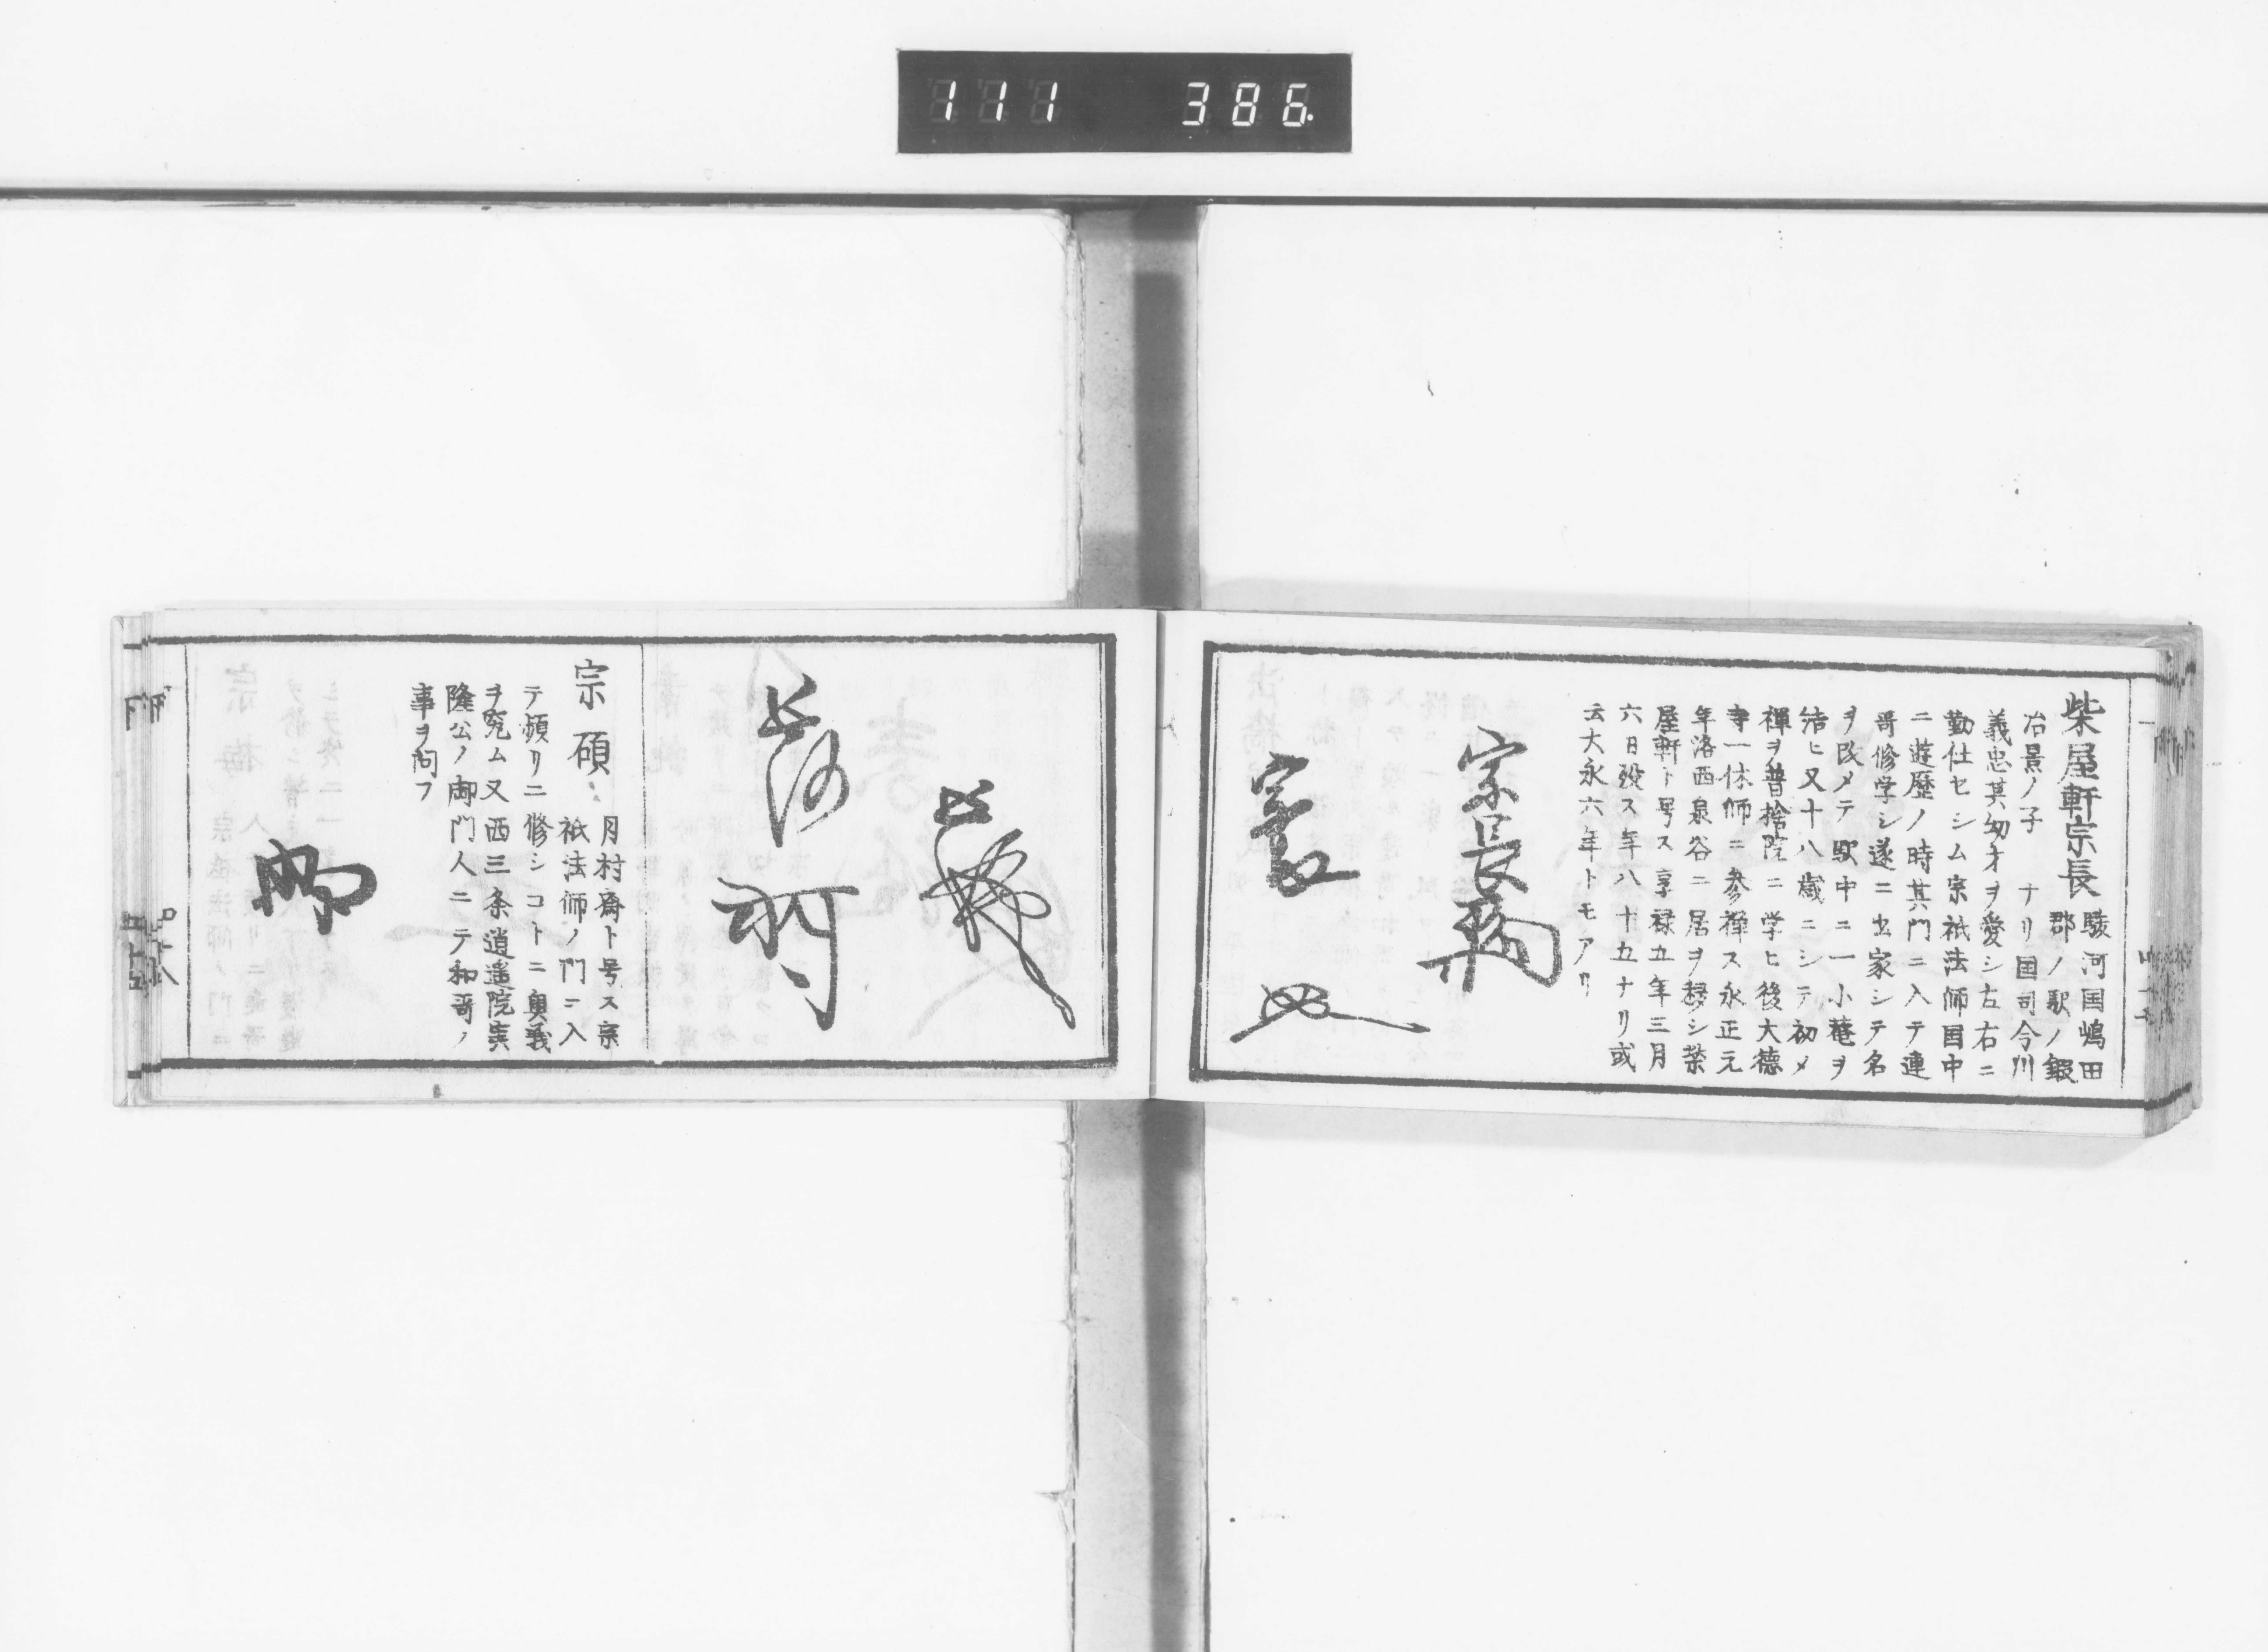 111 386.
柴屋軒宗長
駿河国嶋田
郡ノ駅ノ鍜
冶景ノ子 ナリ国司今川
義忠其幼才ヲ愛シ左右ニ
勤仕セシム宗祇法師国中
ニ遊歴ノ時其門ニ入テ連
哥修学シ遂ニ出家シテ名
ヲ改メテ駅中ニ一小菴ヲ
結ヒ又十八歳ニシテ初メ
禅ヲ普捨院ニ学ヒ後大徳
寺一休師ニ参禅ス永正元
年洛西泉谷ニ居ヲ移シ柴
屋軒ト号ス享禄五年三月
六日殁ス年八十五ナリ或
云大永六年トモアリ
宗長
宗長
長
宗碩
月村斎ト号ス宗
祇法師ノ門ニ入
テ頻リニ修シコトニ奥義
ヲ究ム又西三条逍遥院実
隆公ノ御門人ニテ和哥ノ
事ヲ問フ